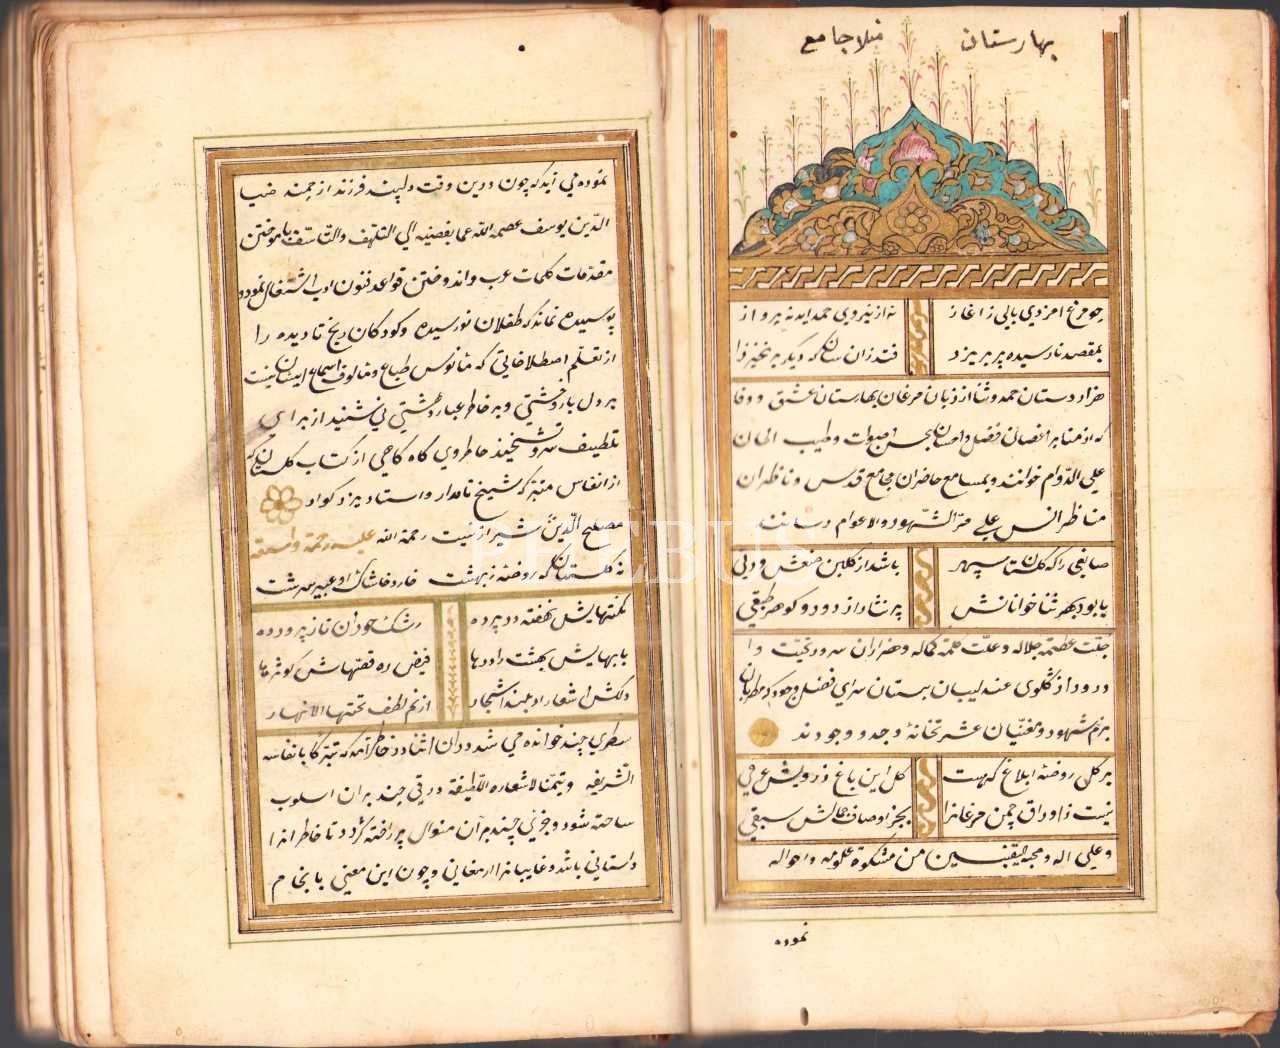 بهارستان منلا جامع
چو مرغ امر ذی بالی ز آغاز نه از نیروی حمد آید به پرواز
بمقصد نارسیده پر بریزد فتد زان سان که دیگر بر نخیزد
هزار دستان حمد و ثنا از زبان مرغان بهارستان عشق و وفا
که از منابر اغصان فضل و احسان بحسن اصوات و طیب الحان
علی الدّوام خوانند و بمسامع حاضران مجامع قدس و ناظران
مناظر انس علی مرّ الشّهور و الاعوام رسانند
صانعی را که گلستان سپهر باشد از گلبن صنعش ورقی
تا بود بهر ثنا خوانانش پر نثار از در و گوهر طبقی
جلّت عظمة جلاله و علت کلمة کماله و هزاران سرود تحیّت و
درود از گلوی عندلیبان بستان سرای فضل وجود که مطربان
بزم شهود و مغنیان عشرتخانهٔ وجد و وجودند
بر گل روضهٔ ابلاغ که هست گل این باغ ز رویش عرقی
نیست ز اوراق چمن مرغانرا بجز اوصاف جمالش سبقی
و علی اله و صحبه المقتبسین من مشکوة علومه و احواله
نموده
نموده می آید که چون درین وقت دلپسند فرزند ارجمند ضیا
الدّین یوسف عصمه الله عما یفضیه الی التلهّف والتأسّف بآموختن
مقدّمات کلمات عرب و اندوختن قواعد فنون ادب اشتغال نمودو
پوشیده نماند که طفلان نورسیده و کودکان رنج نادیده را
از تعلّم اصطلاحاتی که مأنوس طباع و مألوف اسماع ایشان نیست
بر دل بار وحشتی و بر خاطر غبار دهشتی می نشیند از برای
تلطیف سرّ و تشحیذ خاطر وی گاه گاهی از کتاب گلستان که
از انفاس متبرّکه شیخ نامدار و استاد بزرگوار
مصلح الدّین شیرازیست رحمة الله علیه رحمة واسعة
نه گلستان که روضهٔ ز بهشت خار و خاشاک او عبیر سرشت
نکتهایش نهفته در پرده رشک حوران ناز پرورده
بابهایش بهشت را درها فیض ده قصّهاش کوثرها
دلکش اشعار او بلند اشجار از نم لطف تحتها الانهار
سطری چند خوانده می شد در آن اثنا در خاطر آمد که تبرّکا بانفاسه
الشّریفه و تیمّنا لاشعاره اللّطیفة ورقی چند بر آن اسلوب
ساخته شود و جزوی چند بر آن منوال پرداخته گردد تا حاضرانرا
داستانی باشد و غایبانرا ارمغانی و چون این معنی بانجام
PHEBUS